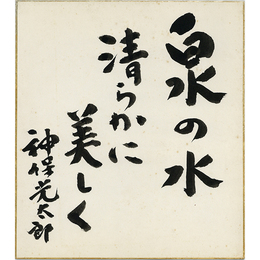 泉の水
清らかに
美しく
神保光太郎